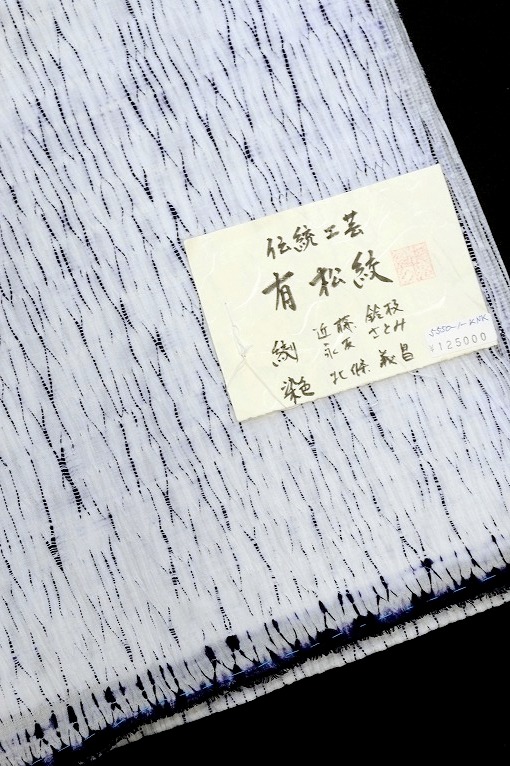 伝統工芸
有松絞
絞 近藤 鈴枝
永友 さとみ
染色 北條 義昌
¥125000